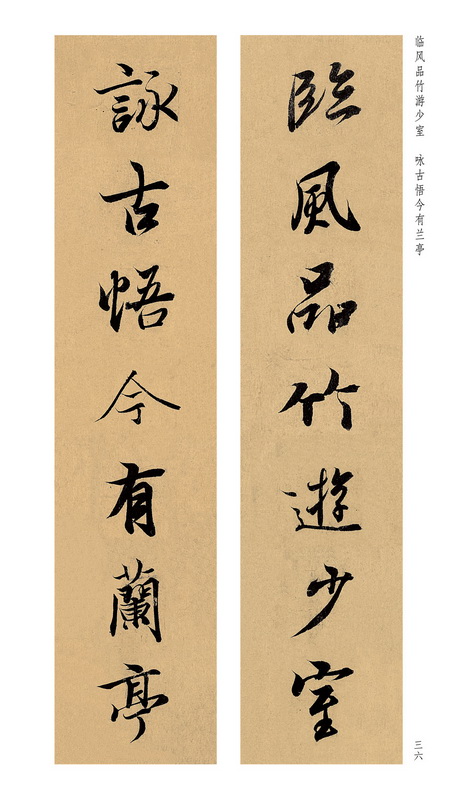 临风品竹游少室 咏古悟今有兰亭
臨風品竹遊少室
詠古悟今有蘭亭
三六